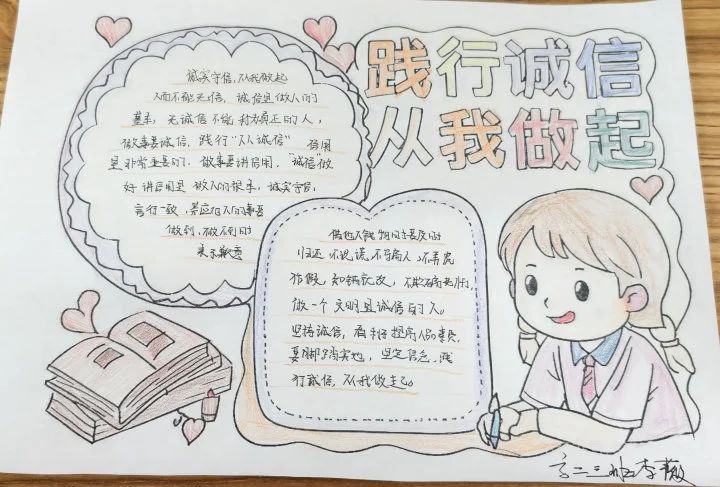 践行诚信
从我做起
诚实守信,从我做起
人而不能无信,诚信是做人的
基本,无诚信不能称为真正的人,
做事要诚信,践行“人人诚信” 信用
是非常重要的,做事要讲信用,“诚信”做
好讲信用是做人的根本,诚实守信,
言行一致,答应他人的事要
做到,做不到时
表示歉意
借他人钱物时要及时
归还 不说谎,不骗人,不弄虚
作假,知错就改,不欺骗
做一个文明且诚信的人。
坚持诚信,
要脚踏实地,坚定信念,践
行诚信,从我做起。
高二三班李薇